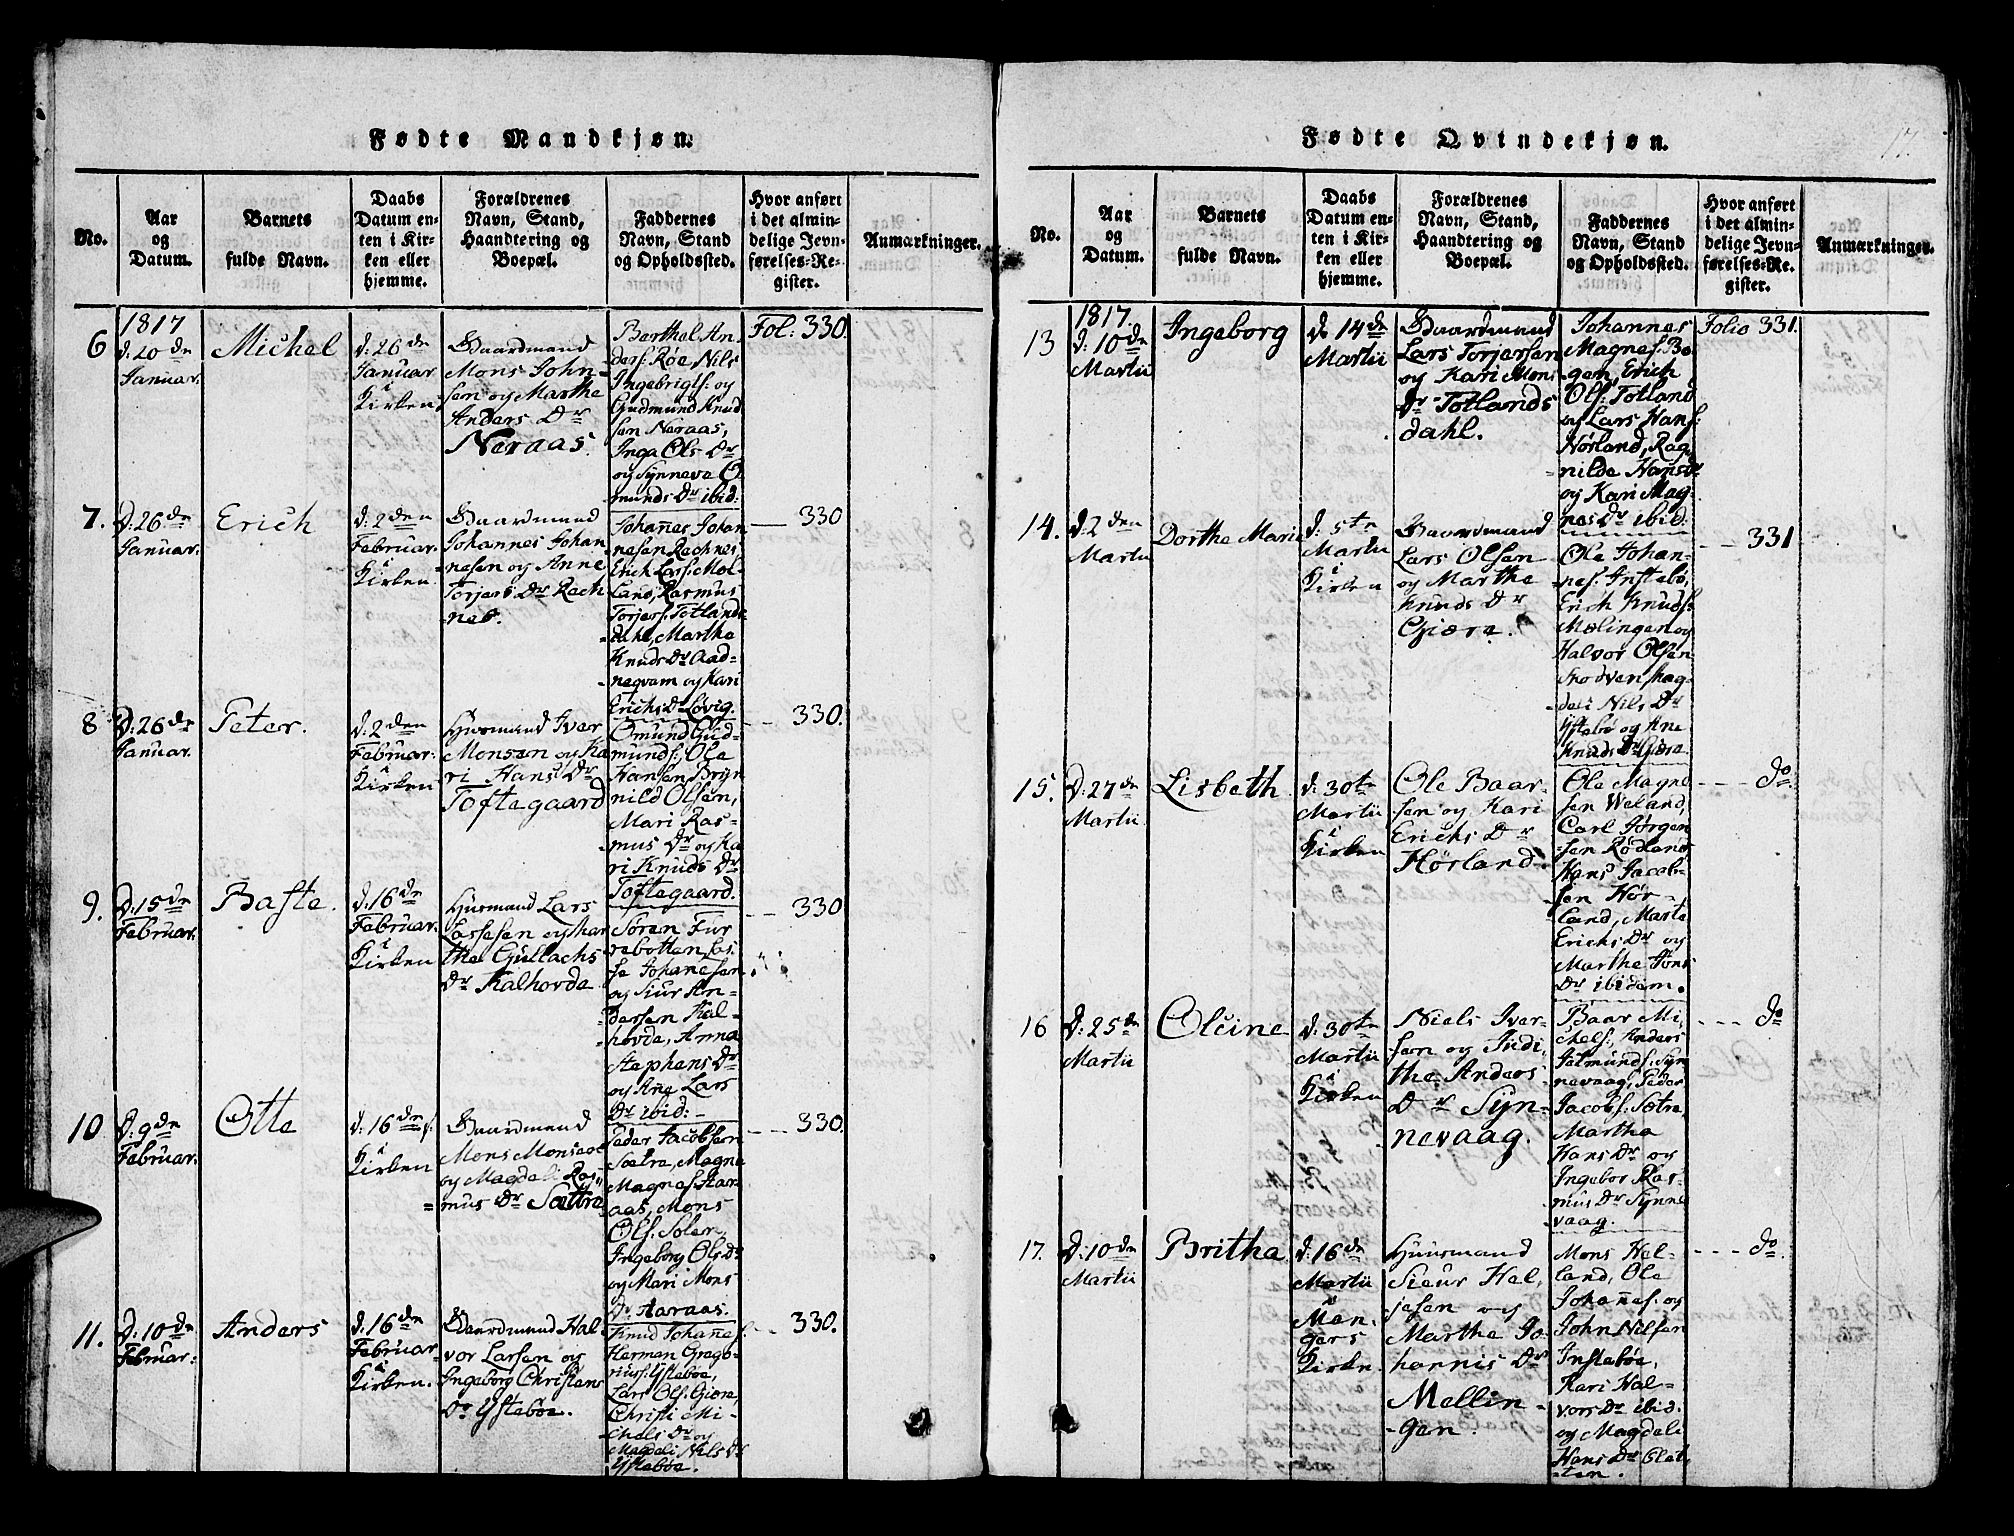 Fødte Mandkjøn.
No.
Aar
og
Datum.
Barnets
fulde Navn.
Daabs
Datum en-
ten i Kir-
ken eller
hjemme.
Forældrenes
Navn, Stand,
Haandtering og
Boepæl.
Faddernes
Navn, Stand
og Opholdssted.
Hvor anført
i det almin-
delige Jevn-
førelses-Re-
gister.
Anmærkninger.
6
1817
d: 20de
Januar.
Michel
d: 26de
Januar
i
Kirken
Gaardmand
Mons John-
sen og Marthe
Anders Dr
Neraas.
Berthel An-
ders: Røe, Nils
Ingebrigts: og
Gudmund Knud
sen Neraas,
Inga Ols Dr
og Synneva O
munds Dr ibid:
Fol: 330.
7.
D: 26de
Januar.
Erich
d: 2den
Februar.
i
Kirken.
Gaardmand
Johannes Johan-
nesen og Anne
Torjers Dr Rech
nes.
Johanes Johan-
nesen Rechnes,
Erich Lars: Mol-
land, Rasmus
Torjers: Totlands-
dahl, Martha
Knuds Dr Aad-
negvam og Kari
Erichs Dr Løvig.
330
8
D: 26de
Januar.
Peter.
d: 2den
Februar:
i
Kirken
Huusmand Iver
Monsen og Ka
ri Hans Dr
Toftegaard
Omund Gud-
munds: Ole
Hansen Bryn
nild Olsen,
Mari Ras-
mus Dr og Ka
ri Knuds Dr
Toftegaard.
330.
9.
D: 15de
Februar.
Baste.
d: 16de
Februar.
i
Kirken
Huusmand Lars
Lassesen og Mar
the Gullachs
Dr Kalhovde
Søren Fur
rebotten, Las-
se Johanesen
og Siur An-
dersen Kal-
hovde, Anna
Stephens Dr
og Ane Lars
Dr ibid:
330
10
D: 9de
Februar.
Otte
d: 16de
i
Kirken
Gaardmand
Mons Monsen
og Magdeli Ras
mus Dr Sættre
Peder Jacobsen
Sætre, Magne
Magnes: Aar-
aas, Mons
Ols: Soler,
Ingeborg Ols Dr
og Mari Mons
Dr Aaraas.
330.
11.
D: 10de
Februar:
Anders
d: 16de
Februar
i
Kirken.
Gaardmand Hal-
vor Larsen og
Ingeborg Christens
Dr Ystebøe.
Knud Johanes:
Herman Grego-
rius: Ystebøe,
Lars Ols: Giære,
Christi Mi-
chels Dr og
Magdeli Nels Dr
Ystebøe.
330.
Fødte Qvindekjøn.
17.
No.
Aar
og
Datum.
Barnets
fulde Navn.
Daabs
Datum en-
ten i Kir-
ken eller
hjemme.
Forældrenes
Navn, Stand,
Haandtering og
Boepæl.
Faddernes
Navn, Stand
og Opholdssted.
Hvor anført
i det almin-
delige Jevn-
førelses-Re-
gister.
Anmærkninger.
13
1817.
d: 10de
Martii
Ingeborg
d: 14de
Martii
Gaardmand
Lars Torjersen
og Kari Mons
Dr Totlands
dahl.
Johannes
Magnes: Bø-
gen, Erich
Ols: Totland
og Lars Hans:
Hørland, Rag-
nilde Hans Dr
og Kari Mag-
nes Dr ibid:
Folio 331.
14.
d: 2den
Martii
Dorthe Marie
d. 5te
Martii
i
Kirken
Gaardmand
Lars Olsen
og Marthe
Knuds Dr
Giære.
Ole Johan-
nes: Instebø,
Erich Knuds:
Mælingen og
Halvor Olsen
Skodven, Mag-
deli Nils Dr
Ystebø og Ane
Knuds Dr Giære
331
15.
D: 27de
Martii
Lisbeth
d: 30te
Martii
i
Kirken
Ole Baar-
sen og Kari
Erichs Dr
Hørland.
Ole Magne
sen Weland,
Carl Jørgen
sen Rødland
Hans Jacob-
sen Hør-
land, Marte
Erichs Dr og
Marthe Jons
Dr ibidem.
do.
16
D: 25de
Martii
Oleine
d: 30te
Martii
i
Kirken
Niels Iver-
sen og Indi-
the Anders
Dr Syn-
nevaag.
Baar Mi-
chels:, Anders
Jetmunds: Syn
nevaag, Peder
Jacobs: Sætre,
Martha
Hans Dr og
Ingebor Ras-
mus Dr Synne
vaag.
do
17.
D: 10de
Martii
Britha
d: 16de
Martii
i
Man-
gers
Kirke.
Huusmand
Sieur Hel-
jesen og
Marthe Jo-
hannis Dr
Mellin-
gen.
Mons Hel-
land, Ole
Johannes: og
John Nilsen
Instebøe,
Kari Hal-
vors Dr ibid.
og Magdeli
Hans Dr Slet-
ten.
do.